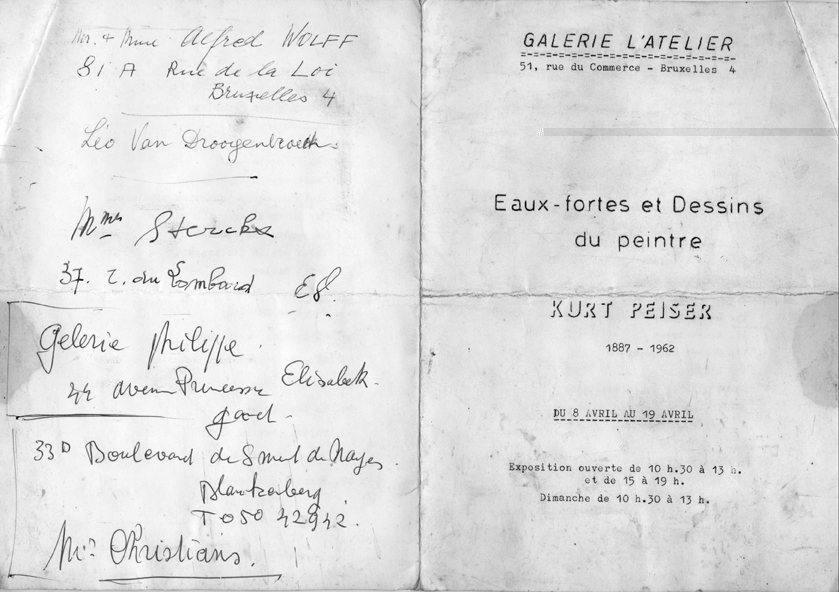 Mr. + Mme Alfred WOLFF
81 A Rue de la Loi
Bruxelles 4
Léo Van Droogenbroeck
Mme Sterckx
37. r. du Lombard E8.
Galerie philippe.
44 avenue Princesse Elisabeth.
33D Boulevard de Smet de Nayer
Blankenberg
T 050 42942.
Mr. Christians.
GALERIE L'ATELIER
51, rue du Commerce - Bruxelles 4
Eaux-fortes et Dessins
du peintre
KURT PEISER
1887 - 1962
DU 8 AVRIL AU 19 AVRIL
Exposition ouverte de 10 h.30 à 13 h.
et de 15 à 19 h.
Dimanche de 10 h.30 à 13 h.